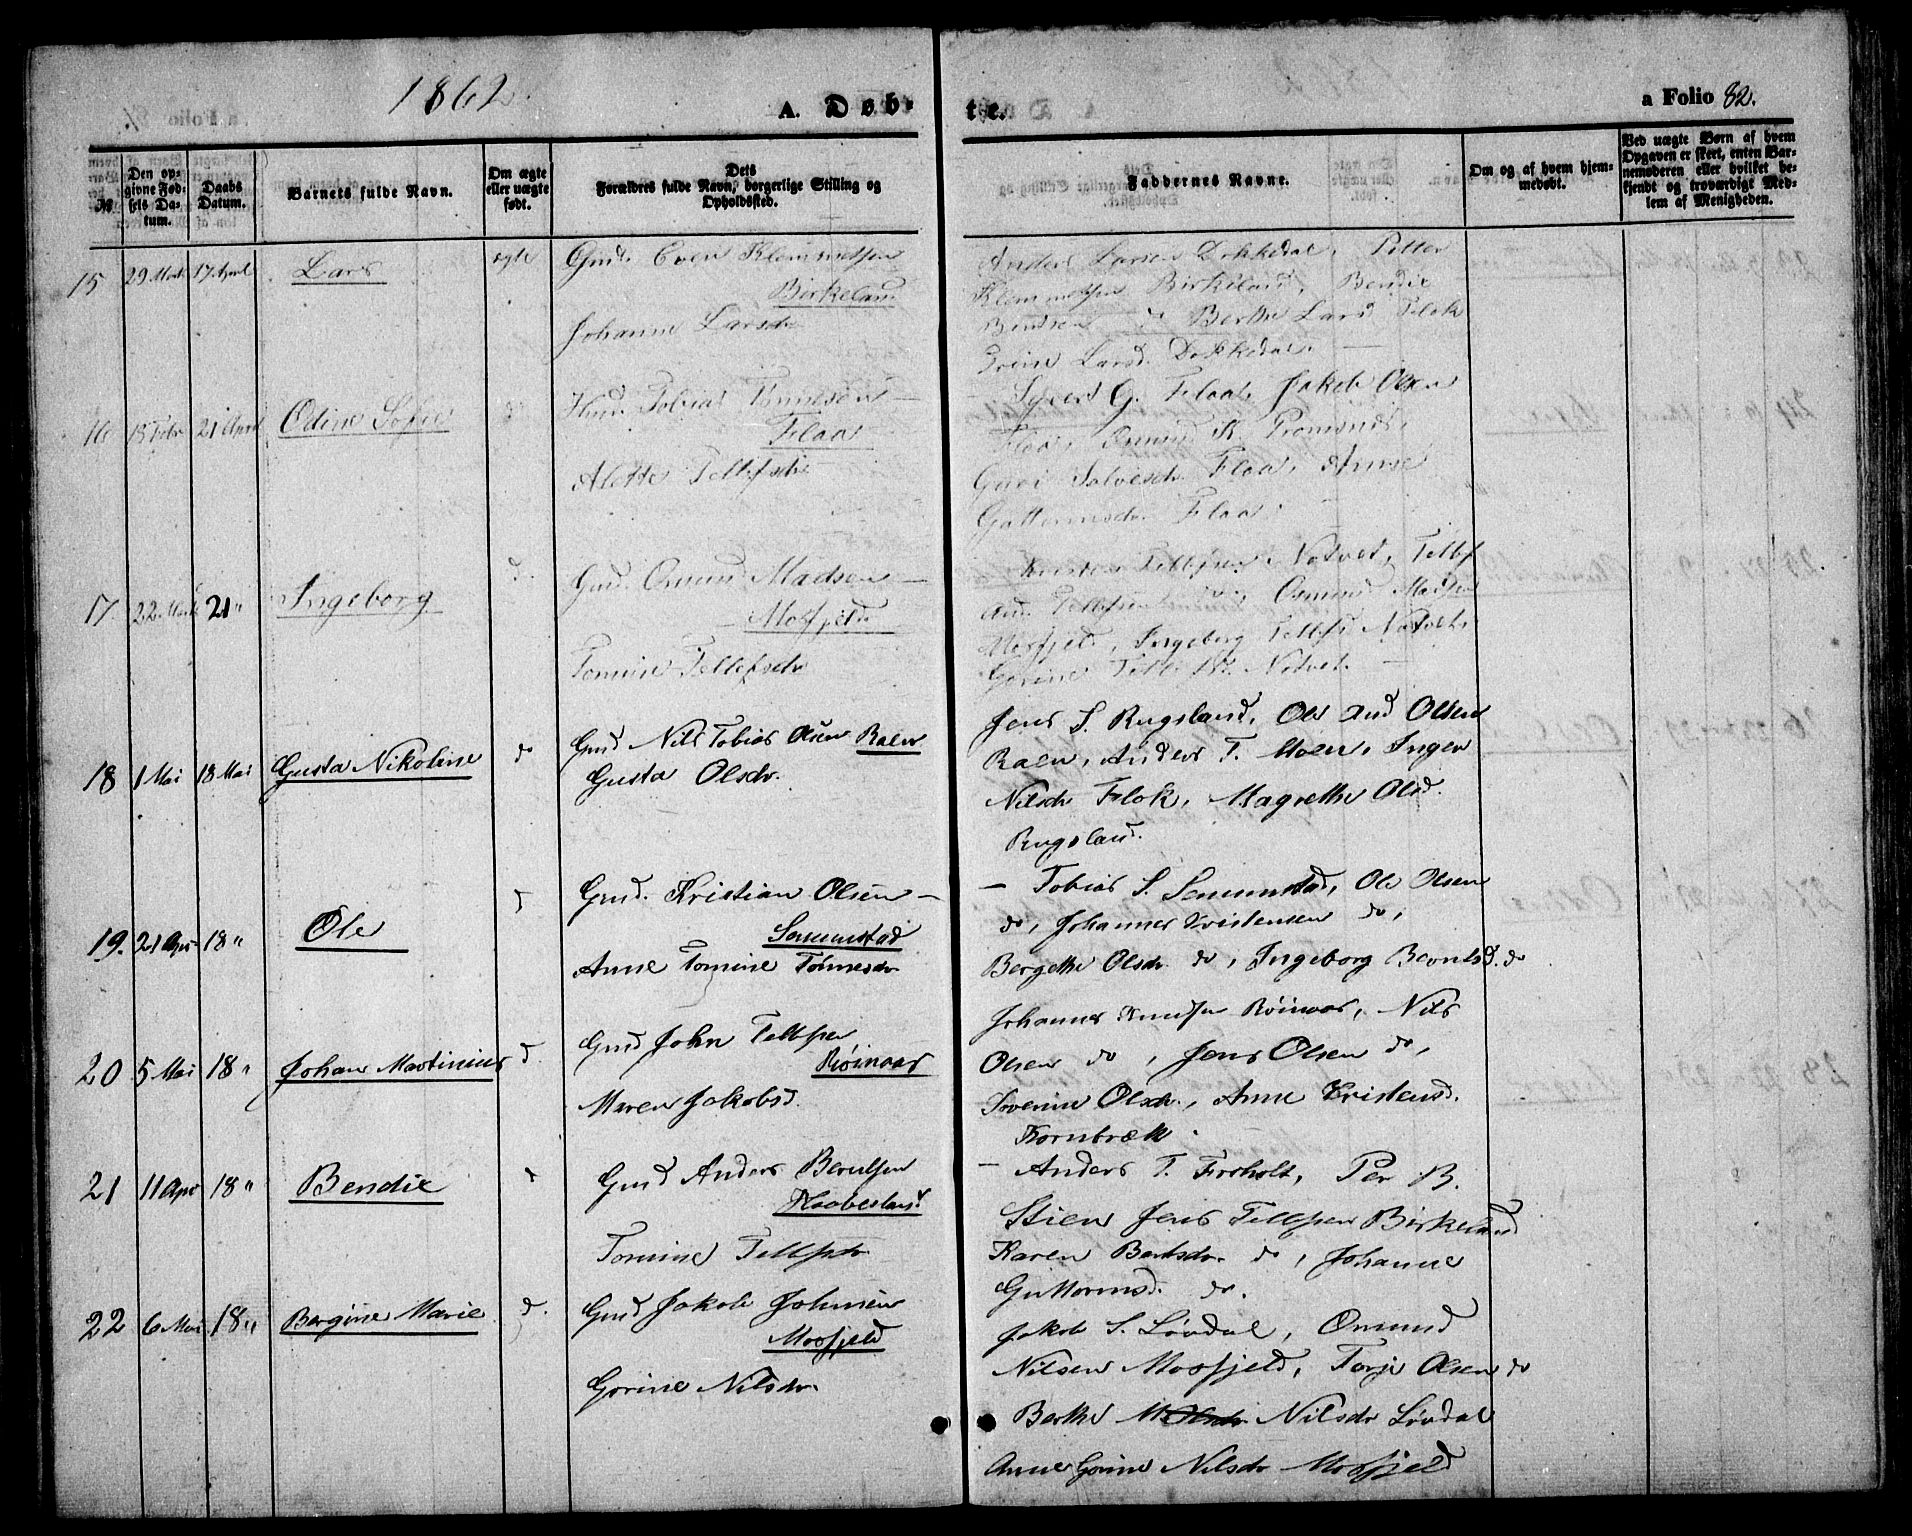 1862
A. Døb-
te.
a Folio 82.
№
Den op-
givne Fød-
sels Da-
tum.
Daabs
Datum.
Barnets fulde Navn.
Om ægte
eller uægte
født.
Dets
Forældres fulde Navn, borgerlige Stilling og
Opholdssted.
Faddernes Navne.
Om og af hvem hjem-
medøbt.
Ved uægte Børn af hvem
Opgaven er skeet, enten Bar-
nemoderen eller hvilket be-
kjendt og troværdigt Med-
lem af Menigheden.
15 29 Marts 17 April Lars ægte
Gmd. Even Klemmetsen
Birkeland
Johanne Larsdr
Anders Larsen Dokkedal, Petter
Klemmetsen Birkeland, Bendix
Bentsen do Berthe Larsd Flok
Larsd. Dokkedal.
16 18 Febr 21 April Odine Sofie
Tobias Tønnesen
Flaa
Alette Tellefsdr
Sivert G. Flaa, Jakob Olsen
Flaa, Omund K.
Guri Salvesdr Flaa, Anne
Guttormsdr. Flaa.
17. 22 Marts 21 " Ingeborg d.
Gmd. Omund Madsen
Mosfjeld
Tomine Tellefsdr
Tellefsen Natvet, Tellef
And. Tellefsen do, Osmund Madsen
Mosfjeld, Ingeborg Tellefsd Natvet,
Gorine Natvet.
18 1 Mai 18 Mai Gusta Nikoline do
Gmd Nils Tobias Olsen Raen
Gusta Olsdr.
Jens S. Rugsland, Ole And Olsen
Raen, Anders T. Moen, Inger
Nilsdr Flok, Magrethe Olsd.
Rugsland.
19. 21 Apr 18 " Ole d
Gmd. Kristian Olsen
Senumstad
Anne Tomine Tønnesdr
Tobias S. Senumstad, Ole Olsen
do, Johannes Kristensen do,
Bergethe Olsdr do, Ingeborg Berntsd. do
20 5 Mai 18 " Johan Martinius d.
Gmd John Tellefsen
Røinaas
Maren Jakobsd.
Johannes Knudsen Røinaas, Nils
Olsen do, Jens Olsen do,
Severine Olsdr., Anne Kristensd.
Kornbræk.
21 11 Apr 18 " Bendix d
Gmd Anders Berulfsen
Haabesland
Tomine Tellefsdr
Anders T. Frøholt, Per B.
Stien Jens Tellefsen Birkeland
Karen Bentsdr. do, Johanne
Guttormsd. do.
22 6 Mai 18 " Bergine Marie d.
Gmd Jakob Johnsen
Mosfjeld
Gorine Nilsdr
Jakob S. Løvdal, Omund
Nilsen Mosfjeld, Torje Olsen do
Berthe M Olsdr Nilsdr Løvdal
Anne Gorine Nilsdr Mosfjeld